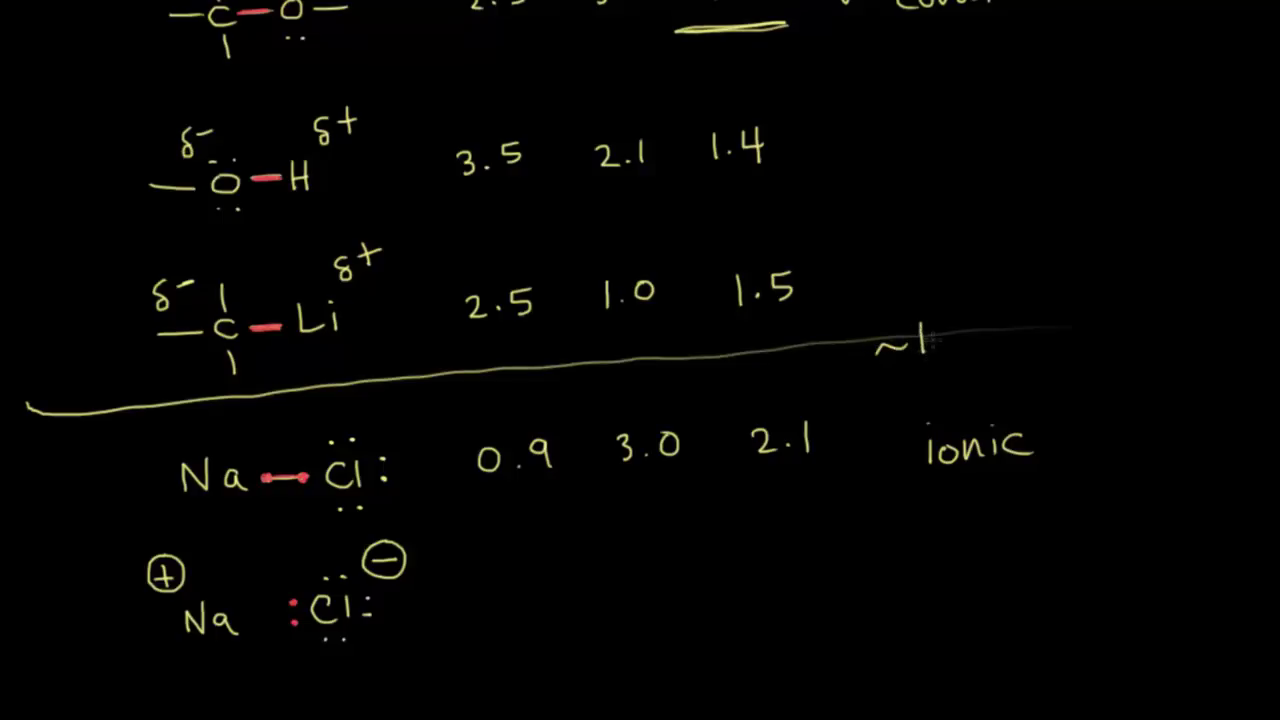 C O
δ- δ+
O H 3.5 2.1 1.4
δ- δ+
C Li 2.5 1.0 1.5
~1
Na Cl 0.9 3.0 2.1 ionic
+ -
Na Cl